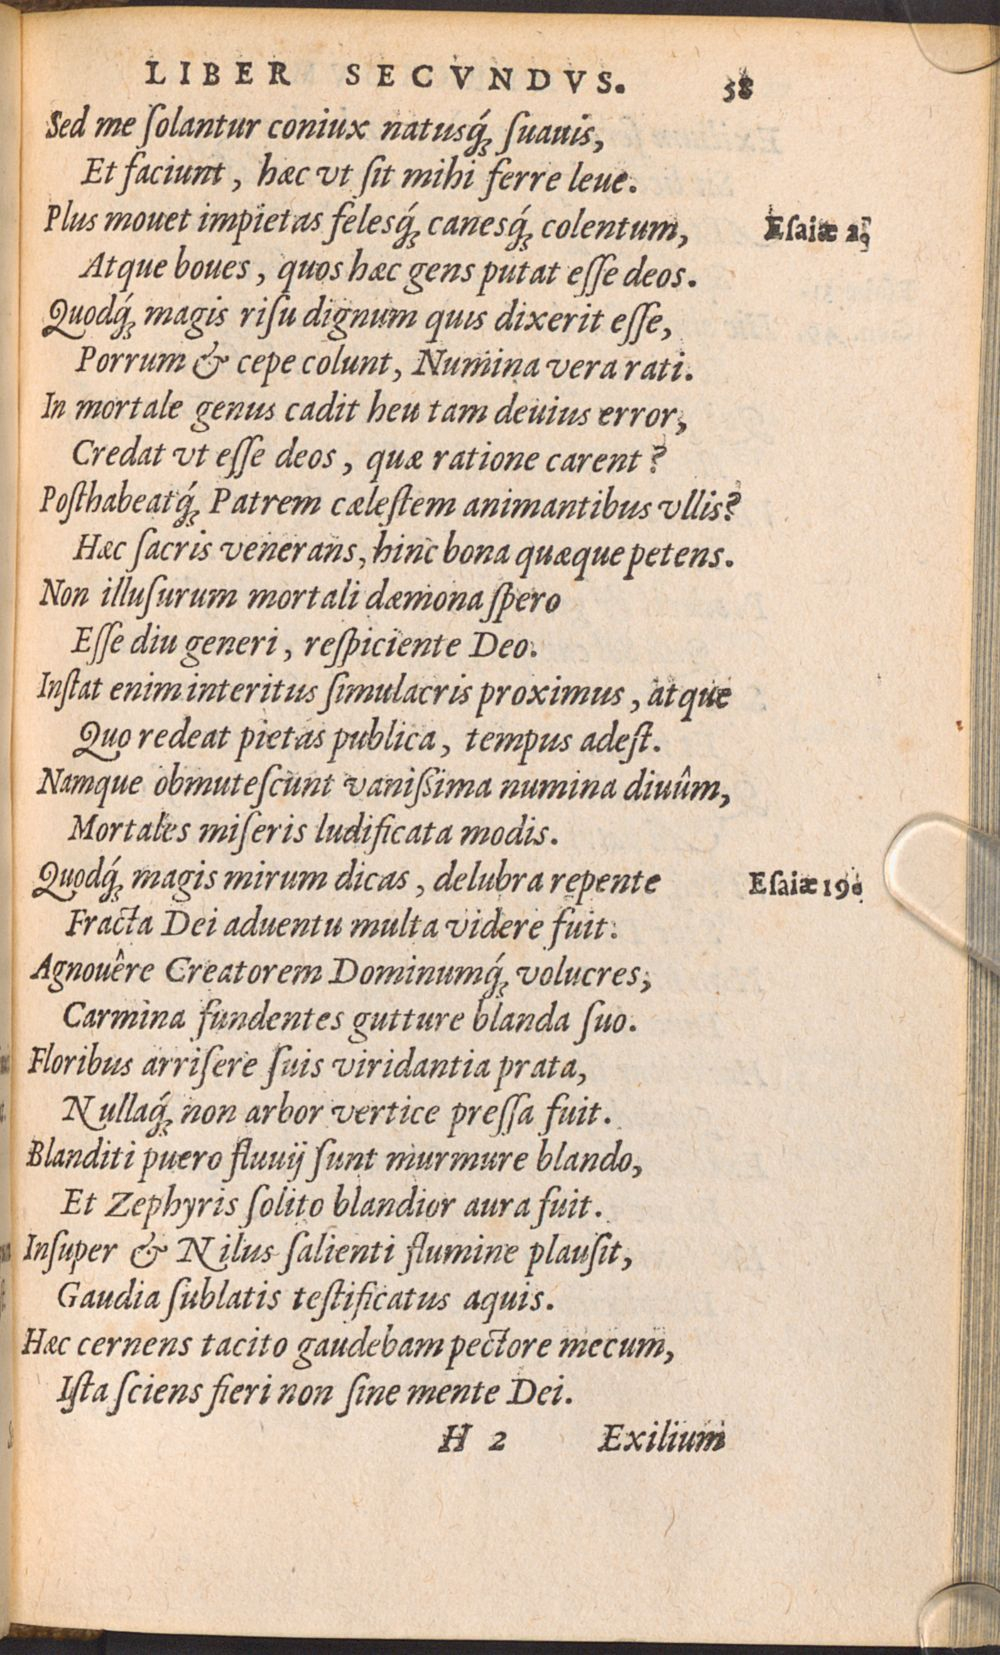 LIBER SECVNDVS. 58
Sed me ſolantur coniux natusq́; ſuauis,
Et faciunt, hæc vt ſit mihi ferre leue.
Plus mouet impietas felesq́; canesq́; colentum, Eſaiæ
Atque boues, quos hæc gens putat eſſe deos.
Quodq́; magis riſu dignum quis dixerit eſſe,
Porrum & cepe colunt, Numina vera rati.
In mortale genus cadit heu tam deuius error,
Credat vt eſſe deos, quæ ratione carent?
Poſthabeatq́; Patrem cæleſtem animantibus vllis?
Hæc ſacris venerans, hinc bona quæque petens.
Non illuſurum mortali dæmona ſpero
Eſſe diu generi, reſpiciente Deo.
Inſtat enim interitus ſimulacris proximus, atque
Quo redeat pietas publica, tempus adeſt.
Namque obmuteſcunt vaniſsima numina diuûm,
Mortales miſeris ludificata modis.
Quodq́; magis mirum dicas, delubra repente Eſaiæ 19.
Fracta Dei aduentu multa videre fuit.
Agnouêre Creatorem Dominumq́; volucres,
Carmina fundentes gutture blanda ſuo.
Floribus arriſere ſuis viridantia prata,
Nullaq́; non arbor vertice preſſa fuit.
Blanditi puero fluuij ſunt murmure blando,
Et Zephyris ſolito blandior aura fuit.
Inſuper & Nilus ſalienti flumine plauſit,
Gaudia ſublatis teſtificatus aquis.
Hæc cernens tacito gaudebam pectore mecum,
Iſta ſciens fieri non ſine mente Dei.
H 2 Exilium